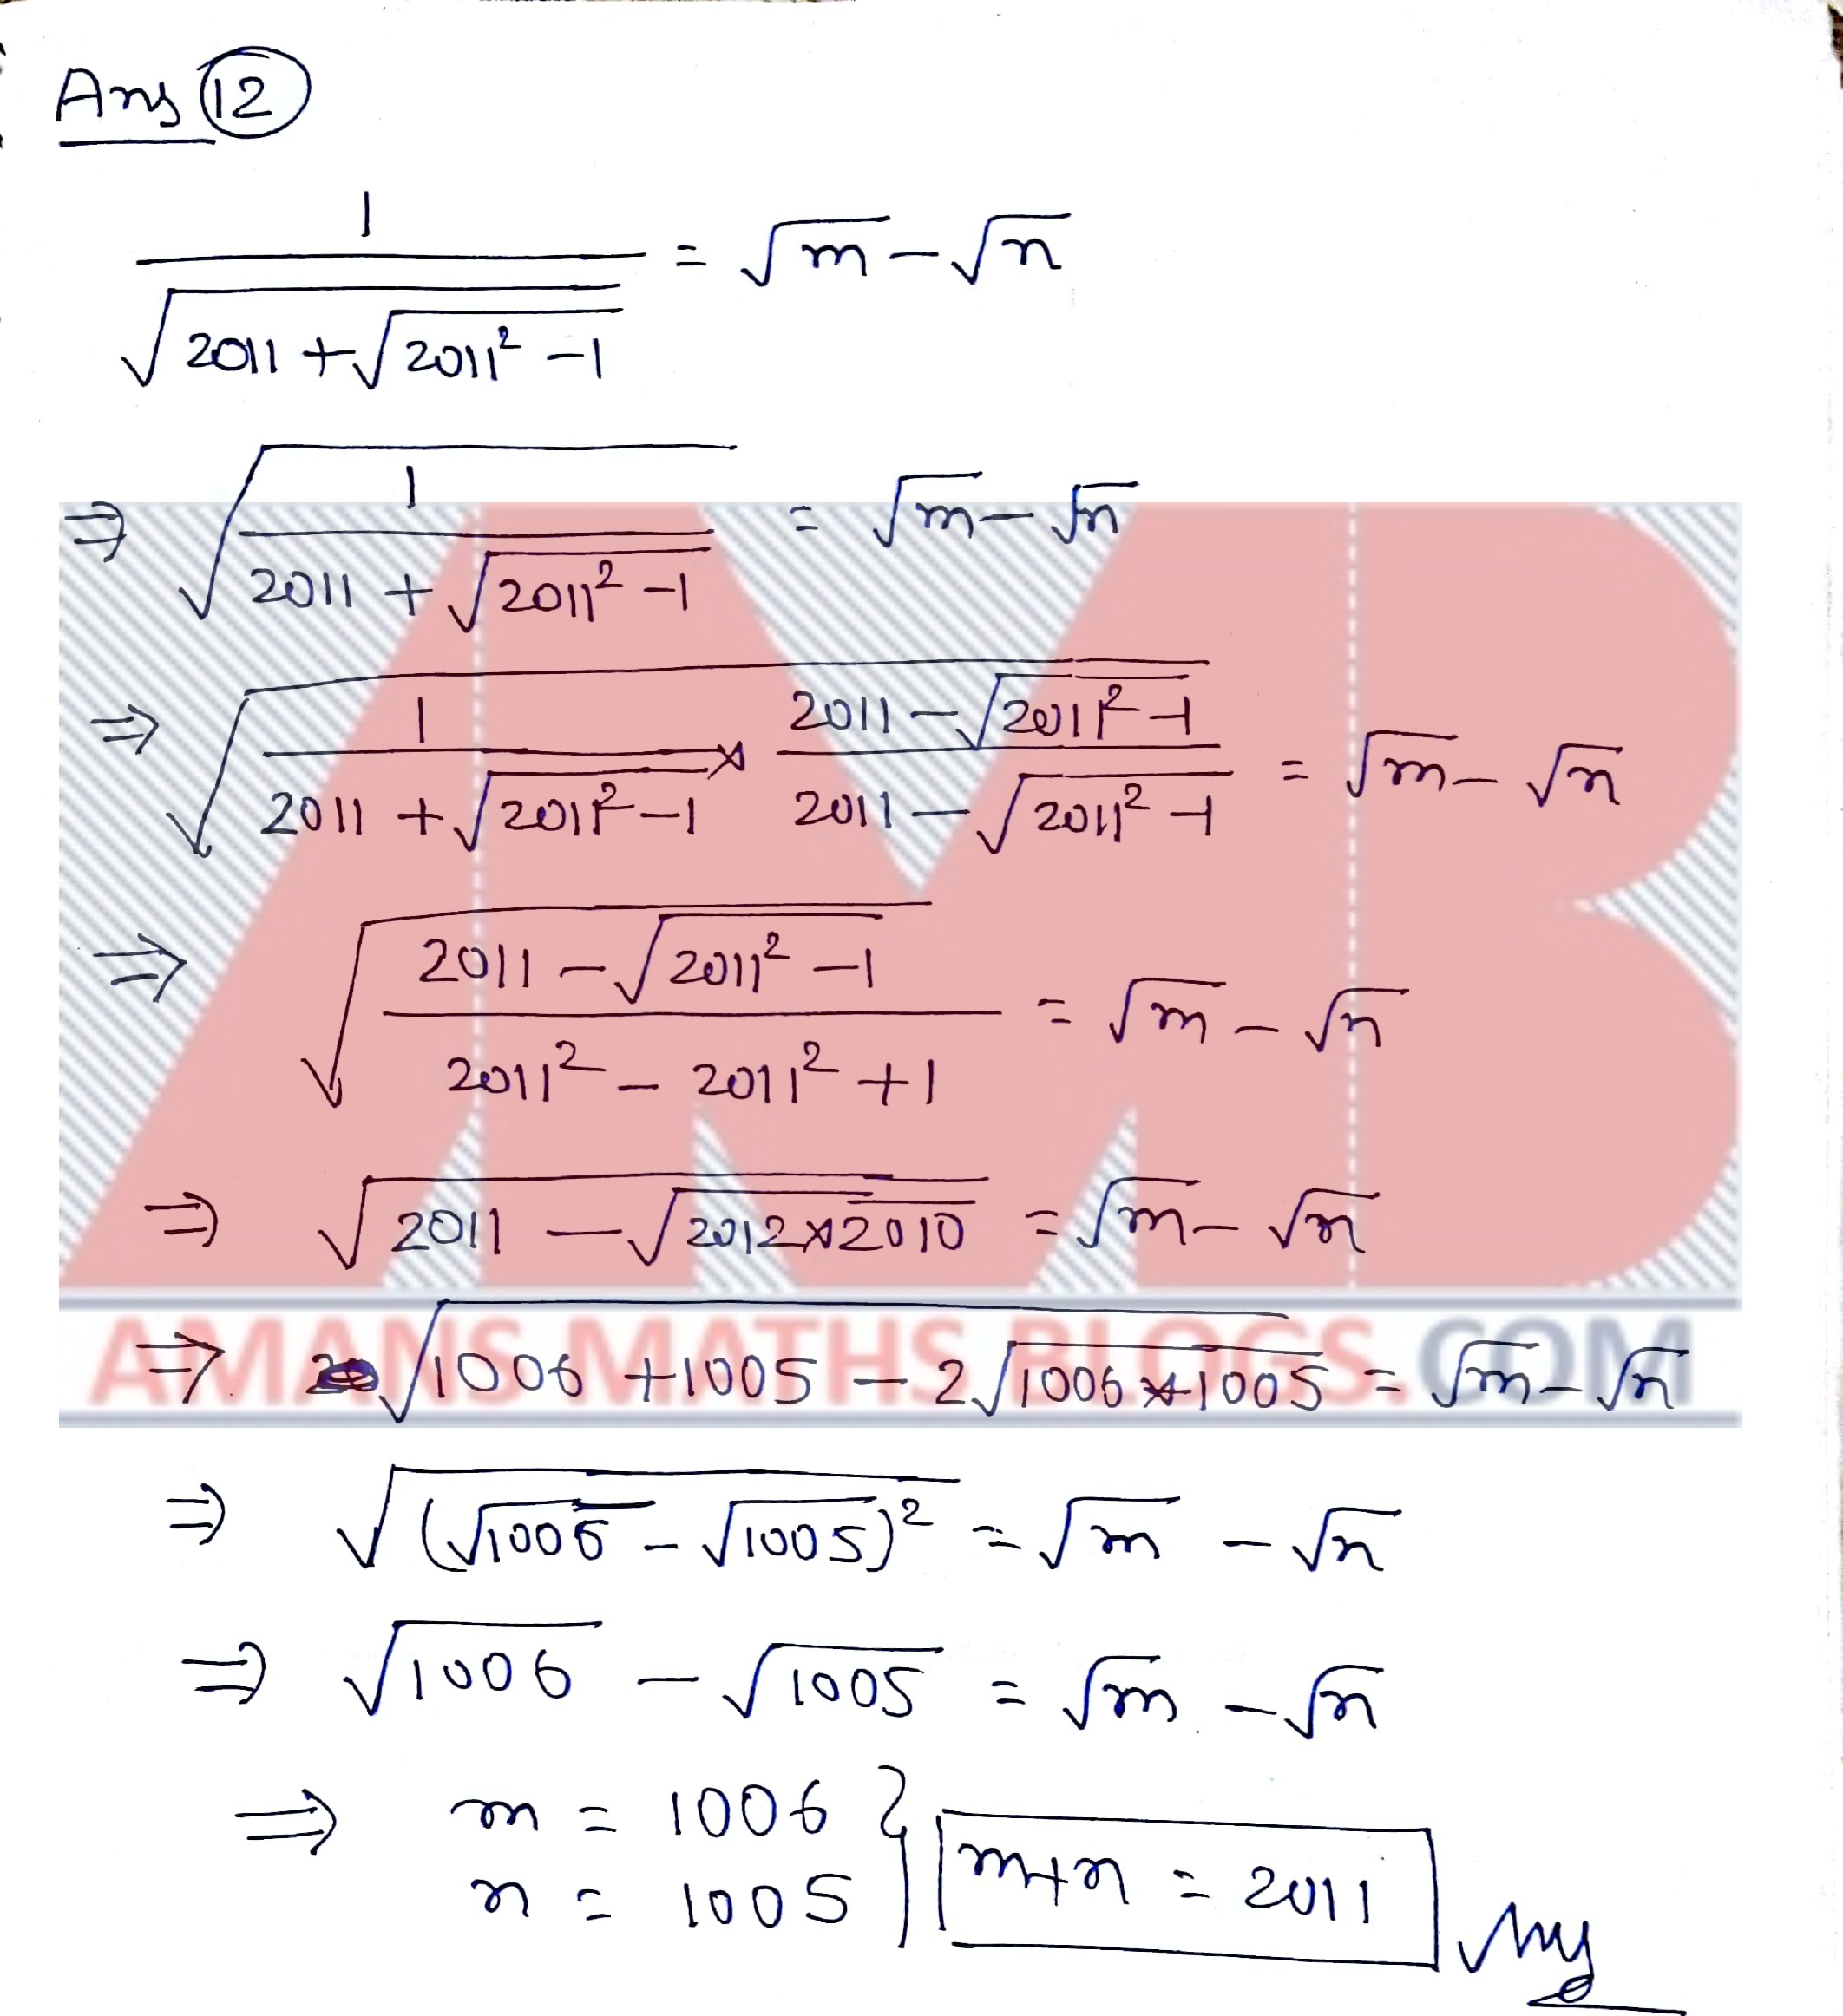 Ans 12
1/√(2011 + √(2011² - 1)) = √m - √n
⇒ √(1/(2011 + √(2011² - 1))) = √m - √n
⇒ √(1/(2011 + √(2011² - 1)) × (2011 - √(2011² - 1))/(2011 - √(2011² - 1))) = √m - √n
⇒ √((2011 - √(2011² - 1))/(2011² - 2011² + 1)) = √m - √n
⇒ √(2011 - √(2012×2010)) = √m - √n
AMANS MATHS BLOGS.COM
⇒ √(1006 + 1005 - 2√(1006×1005)) = √m - √n
⇒ √((√1006 - √1005)²) = √m - √n
⇒ √1006 - √1005 = √m - √n
⇒ m = 1006
n = 1005 } m+n = 2011 Ans